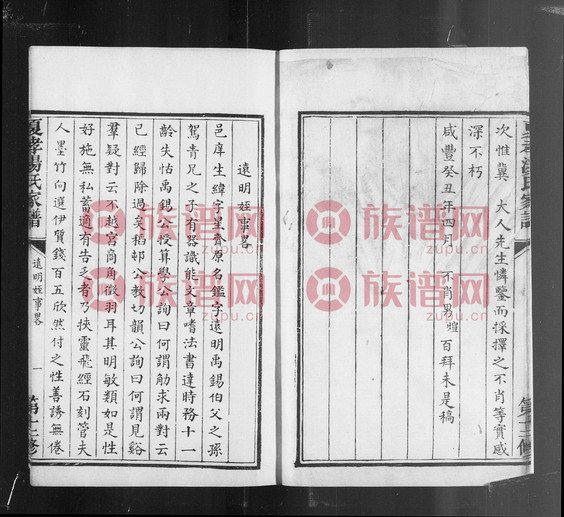 次惟冀 大人先生憐鑒而採擇之不肖等實感
深不朽
咸豐癸丑年四月 不肖男 煊 百拜未是稿
遠明姪事畧
邑庠生緯字星齋原名鑑字遠明禹錫伯父之孫
駕青兄之子有器識能文章嗜法書達時務十一
齡失怙禹錫公授算學公詢曰何謂勛求兩對云
已經歸除過矣稻邨公教切韻公詢曰何謂見谿
羣疑對云不越宮商角徵羽耳其明敏類如是性
好施無私蓄適有告乏者乃挾靈飛經石刻管夫
人墨竹向選伊質錢百五欣然付之性善誘無倦
夏孝湯氏家譜
遠明姪事畧
一
第十二修
族谱网
zupu.cn
族谱网
zupu.cn
族谱网
zupu.cn
族谱网
zupu.cn